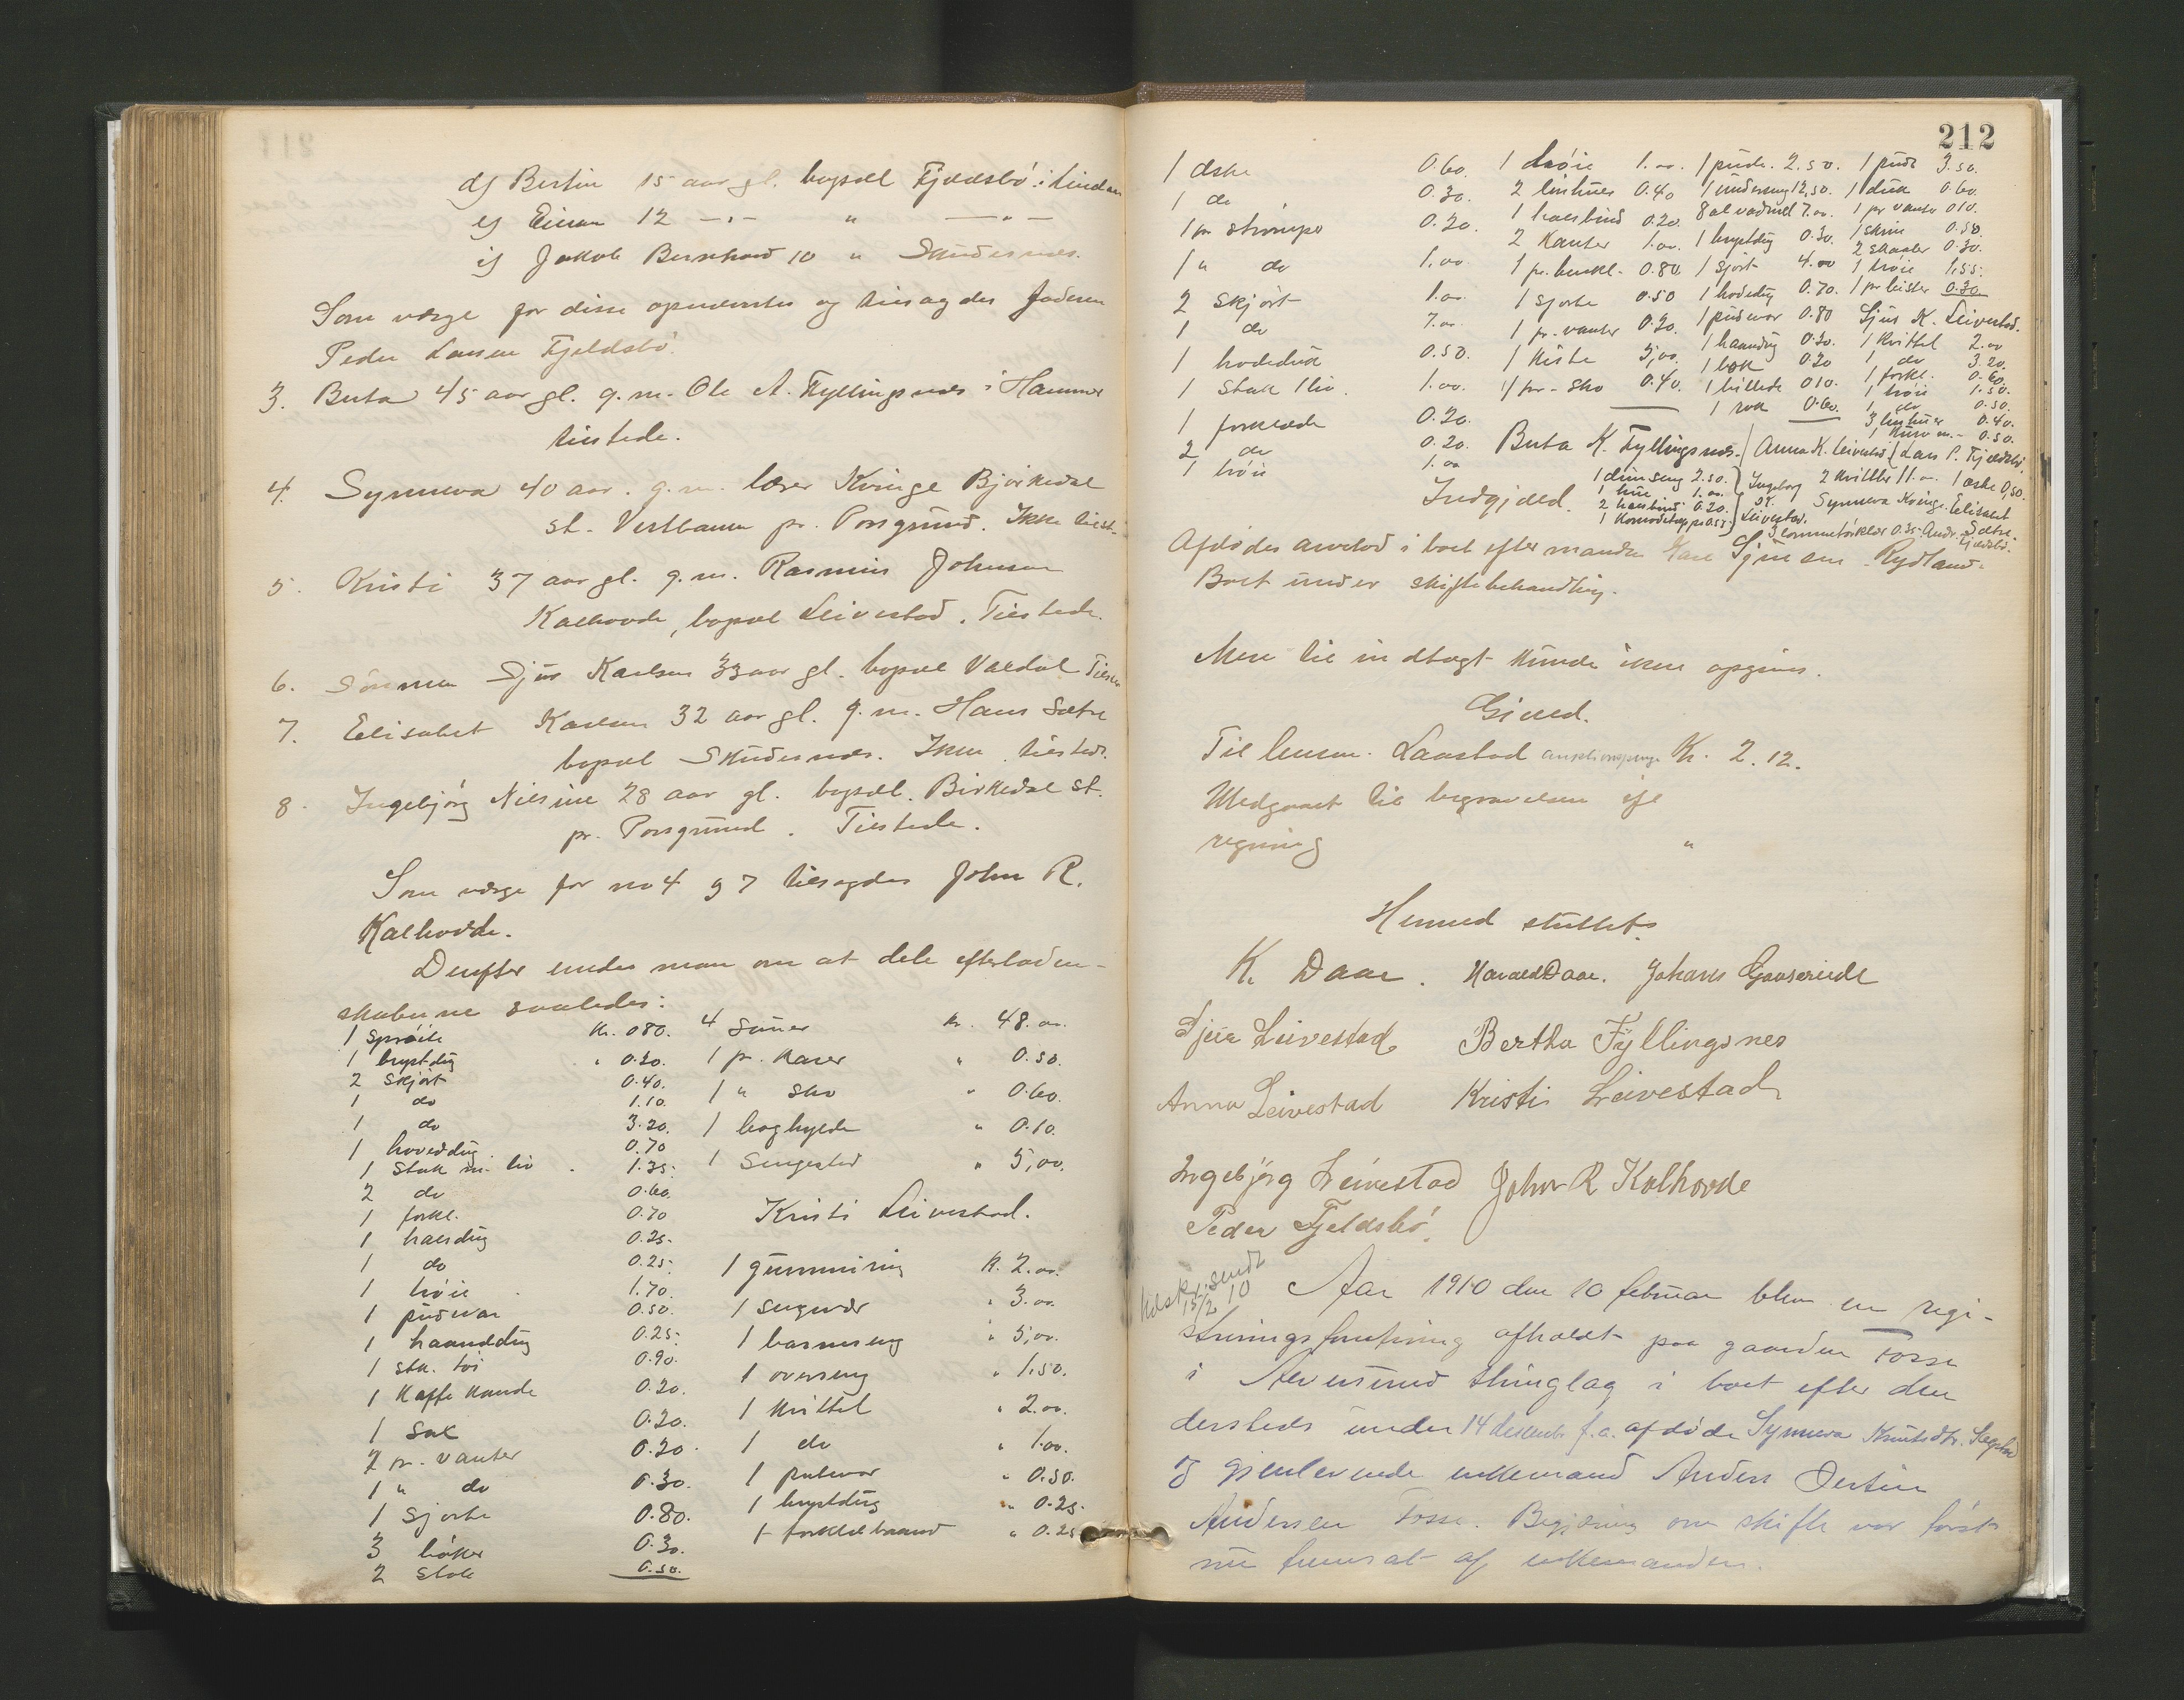 d) Bertin 15 aar gl. bopæl Fjeldsbö i Lindaas
e) Einar 12 -"- " -"-
f) Jakob Bernhard 10 " Skudesnes.
Som værge for disse opnævntes og tilsagdes faderen
Peder Larsen Fjeldsbö.
3. Berta 45 aar gl. g. m. Ole A. Fyllingsnes i Hammer
tilstede.
4. Synneva 40 aar. g. m. lærer Kvinge Björkedal
st. Vestbanen pr. Porsgrund. Ikke tilst.
5. Kristi 37 aar gl. g. m. Rasmus Johnsen
Kalhovde, bopæl Leivestad. Tilstede.
6. Sønnen Sjur Karlsen 33 aar gl. bopæl Valdal Tilst.
7. Elisabet Karlsen 32 aar gl. g. m. Hans Sætre
bopæl Skudesnes. Ikke tilstede.
8. Ingebjörg Nilsine 28 aar gl. bopæl. Birkedal st.
pr. Porsgrund. Tilstede.
Som værge for no 4 og 7 tilsagdes John R.
Kalhovde.
Derefter enedes man om at dele efterladen-
skaberne saaledes:
1 Spröite Kr. 0 80.
1 brystdug " 0.20.
2 Skjört 0.40.
1 do 1.10.
1 do 3.20.
1 hoveddug 0.70
1 Stak m. liv 1.35.
2 do 0.60.
1 forkl. 0.70
1 halsdug 0.25.
1 do 0.25.
1 tröie 1.70.
1 pudevar 0.50.
1 haanddug 0.25.
1 stk. töi 0.90.
1 Kaffe kande 0.20.
1 Sæk 0.20.
2 pr. vanter 0.20.
1 " do 0.30.
1 Sjorte 0.80.
3 böker 0.30.
2 Stole 0.50.
4 Sauer Kr. 48.00.
1 pr. Karer " 0.50.
1 " Sko " 0.60.
1 boghylde " 0.10.
1 Sengested " 5,00.
Kristi Leivestad.
1 gummiring K. 2.00.
1 Sengvær " 3.00.
1 barneseng " 5,00.
1 overseng " 1.50.
1 Kvittel " 2.00.
1 do " 1.00.
1 putevar " 0.50.
1 brystdug " 0.25.
1 forklæ baand " 0.25
212
1 æske 0.60.
1 do 0.30.
1 pr strömper 0.20.
1 " do 1,00.
2 Skjört 1.00.
1 do 7.00.
1 hodedug 0.50.
1 Stak 1 liv. 1.00.
1 forklæde 0.20.
2 do 0.20.
1 tröie 1.00
1 tröie 1.00.
2 linhuer 0.40
1 halsbind 0.20.
2 Kanter 1.00.
1 pr. buxkl. 0.80.
1 sjorte 0.50
1 pr. vanter 0.20.
1 Kiste 5,00.
1 pr. Sko 0.40.
1 pude. 2.50.
1 underseng 12,50.
8 al vadmel 7.00.
1 brystdug 0.30.
1 Sjört 4.00
1 hodedug 0.70.
1 pudevar 0.80
1 haandug 0.20.
1 bok 0.20
1 billede 0 10.
1 rok 0.60.
1 pude 3.50.
1 duk 0.60.
1 pr vanter 0 10.
1 skrin 0.50.
2 skaaler 0.30.
1 tröie 1,55.
1 pr leister 0.30
Sjur K. Leivestad.
1 Kvittel 2.00
1 do 3.20.
1 forkl. 0.60.
1 tröie 1.50.
1 do 0.50.
3 linhuer 0.40.
1 0.50.
Berta K. Fyllingsnes. Anna K. Leivestad Lars P. Fjeldsbö.
Indgjæld.
1 duunseng 2.50.
1 hue 1.00.
2 halsbind 0.20.
1 Komodetæppe 0.55.
Ingeborg K. Leivestad.
2 Kvittler 11.00. 1 æske 0,50.
Synneva Kvinge. Elisabet Sætre.
3 lommetörklær 0.35. Andr. Fjeldsbö.
Afdödes arvelod i boet efter manden Karl Sjursen Rydland.
Boet under skiftebehandling.
Mere til indtægt kunde ikke opgives.
Gjæld.
Til lensm. Laastad auktionspenge Kr. 2.12.
Medgaaet til begravelsen efl
regning "
Hermed sluttet.
K. Daae. Harald Daae. Johans Gaaserud
Sjur Leivestad Bertha Fyllingsnes
Anna Leivestad Kristi Leivestad
Ingebjörg Leivestad John R Kolhovde
Peder Fjeldsbö.
sendt
15/2 10
Aar 1910 den 10 februar blev en regi-
streringsforretning afholdt paa gaarden Fosse
i Alversund thinglag i boet efter den
dersteds under 14 decemb. f. a. afdöde Synneva Knutsdtr.
og gjenlevende enkemand Anders Oertin
Andersen Fosse. Begjæring om skifte var först
nu fremsat af enkemanden.